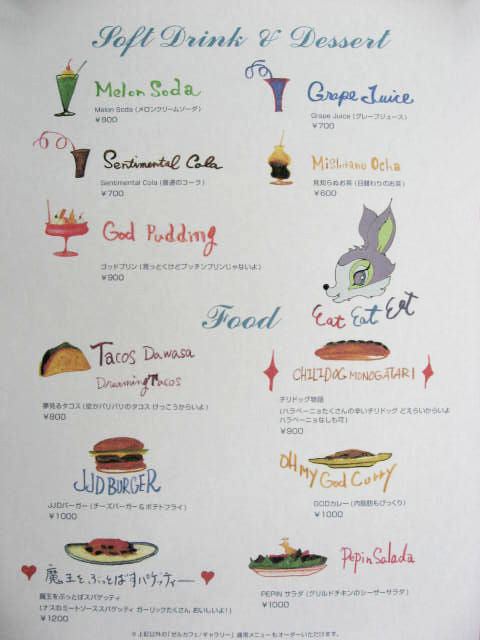 Soft Drink & Dessert
Melon Soda
Melon Soda (メロンクリームソーダ)
¥900
Grape Juice
Grape Juice (グレープジュース)
¥700
Sentimental Cola
Sentimental Cola (普通のコーラ)
¥700
Mishirano Ocha
見知らぬお茶 (日替わりのお茶)
¥600
God Pudding
ゴッドプリン (言っとくけどプッチンプリンじゃないよ)
¥900
Food
Eat Eat Eat
Tacos Dawasa
Dreaming Tacos
夢見るタコス (皮がパリパリのタコス けっこうからいよ)
¥800
CHILIDOG MONOGATARI
チリドッグ物語
(ハラペーニョたくさんの辛いチリドッグ どえらいからいよ
ハラペーニョなしも可)
¥900
JJD BURGER
JJDバーガー (チーズバーガー&ポテトフライ)
¥1000
OH My God Curry
GODカレー (内臓脂もびっくり)
¥1000
魔王をぶっとばすパゲッティー
魔王をぶっとばすスパゲティ
(ナスのミートソーススパゲティ ガーリックたくさん おいしいよ!)
¥1200
Pepin Salada
PEPIN サラダ (グリルドチキンのシーザーサラダ)
¥1000
※上記以外の「ぜんカフェ/ギャラリー」通常メニューもオーダーいただけます。